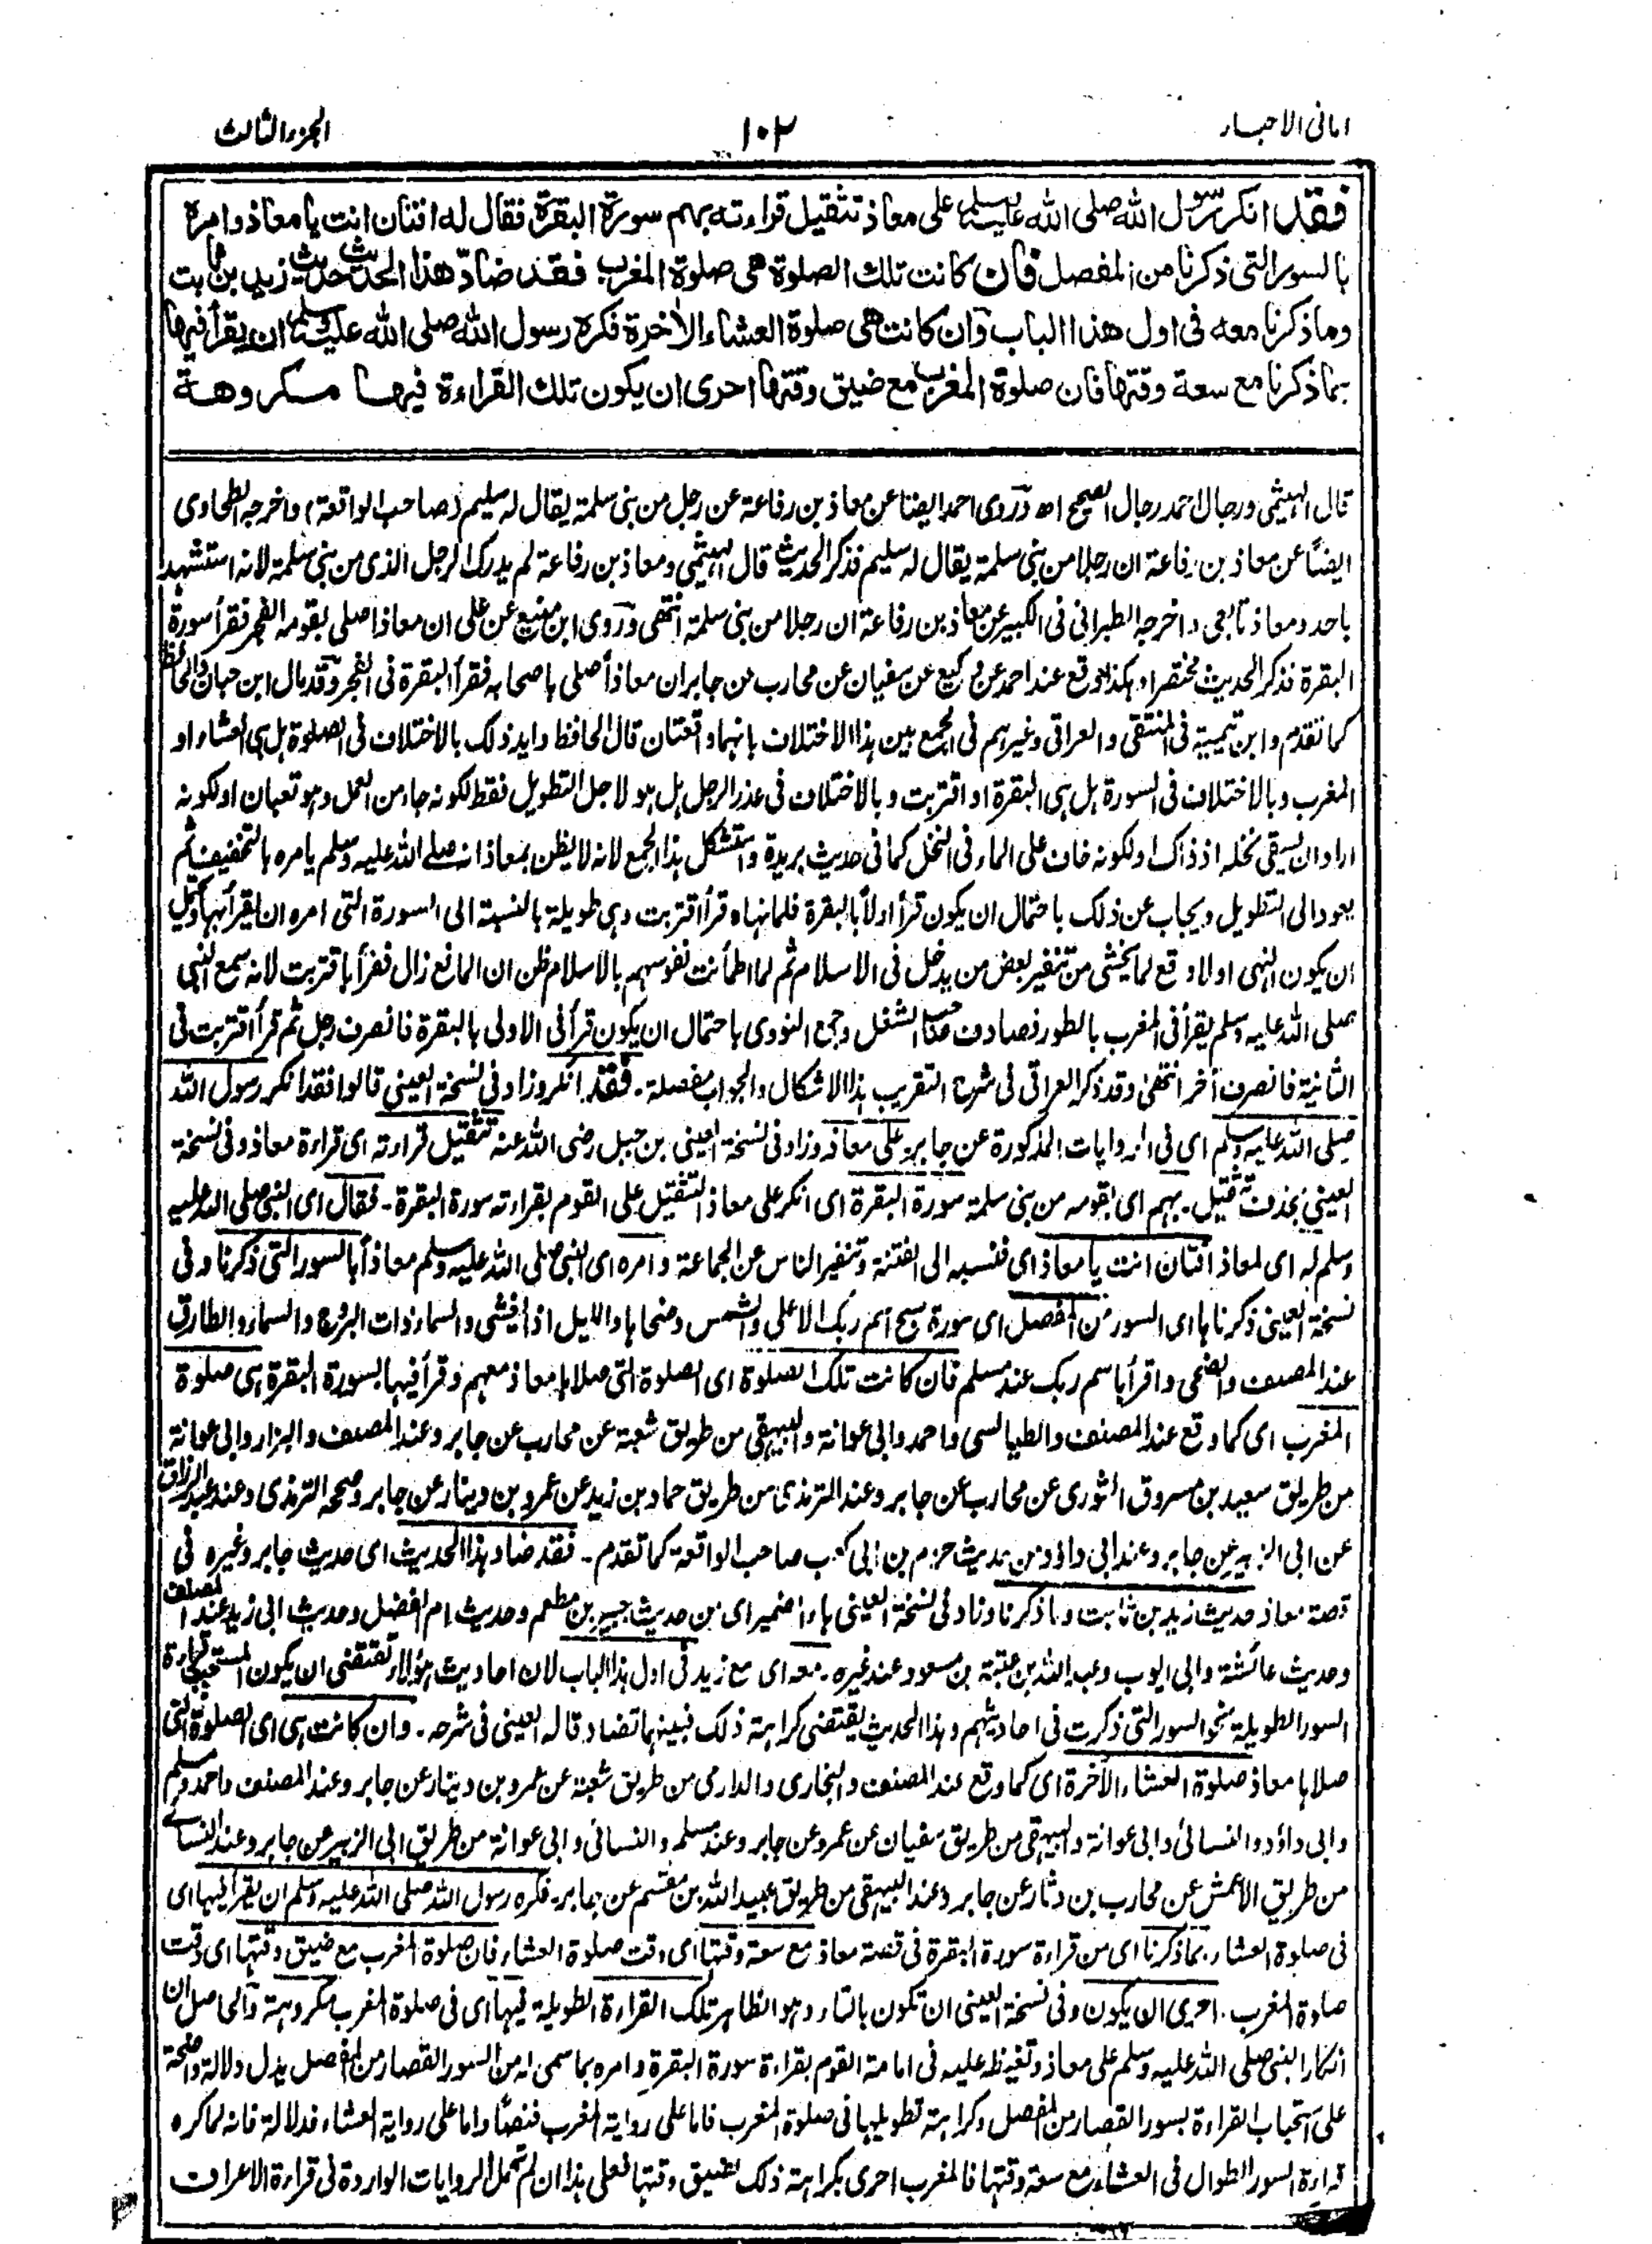 امانی الاحبار
۱۰۲
الجزء الثالث
فقد انكر رسول الله صلى الله عليه وسلم على معاذ تثقيل قراءته بهم سورة البقرة فقال له افتان انت يا معاذ وامره
بالسور التى ذكرنا من المفصل فان كانت تلك الصلوة هى صلوة المغرب فقد ضادّ هذا الحديث حديث زيد بن ثابت
وما ذكرنا معه فى اول هذا الباب وان كانت هى صلوة العشاء الاخرة فكره رسول الله صلى الله عليه وسلم ان يقرأ فيها
بما ذكرنا مع سعة وقتها فان صلوة المغرب مع ضيق وقتها احرى ان يكون تلك القراءة فيها مكروهة
قال الهيثمى ورجال احمد رجال الصحيح اه وروى احمد ايضا عن معاذ بن رفاعة عن رجل من بنى سلمة يقال له سليم (صاحب الواقعة) واخرجه الطحاوى
ايضًا عن معاذ بن رفاعة ان رجلا من بنى سلمة يقال له سليم فذكر الحديث قال الهيثمى ومعاذ بن رفاعة لم يدرك الرجل الذى من بنى سلمة لانه استشهد
باحد ومعاذ تابعى واخرجه الطبرانى فى الكبير عن معاذ بن رفاعة ان رجلا من بنى سلمة انتهى وروى ابن منيع عن على ان معاذا صلى بقومه الفجر فقرأ سورة
البقرة فذكر الحديث مختصرا وهكذا وقع عند احمد عن وكيع عن سفيان عن محارب عن جابر ان معاذاً صلى باصحابه فقرأ البقرة فى الفجر وقد مال ابن حبان والحافظ
كما تقدم وابن تيمية فى المنتقى والعراقى وغيرهم فى الجمع بين هذا الاختلاف بانهما واقعتان قال الحافظ وايد ذلك بالاختلاف فى الصلوة هل هى العشاء او
المغرب وبالاختلاف فى السورة هل هى البقرة او اقتربت وبالاختلاف فى عذر الرجل هل هو لاجل التطويل فقط لكونه جاء من العمل وهو تعبان او لكونه
اراد ان يسقى نخله اذ ذاك او لكونه خاف على الماء فى النخل كما فى حديث بريدة واستشكل هذا الجمع لانه لا يظن بمعاذ انه صلى الله عليه وسلم يامره بالتخفيف ثم
يعود الى التطويل ويجاب عن ذلك باحتمال ان يكون قرأ اولاً بالبقرة فلما نهاه قرأ اقتربت وهى طويلة بالنسبة الى السورة التى امره ان يقرأ بها ويحتمل
ان يكون النهى اولا وقع لما يخشى من تنفير بعض من يدخل فى الاسلام ثم لما اطمأنت نفوسهم بالاسلام ظن ان المانع زال فقرأ باقتربت لانه سمع النبى
صلى الله عليه وسلم يقرأ فى المغرب بالطور فصادف صاحب الشغل وجمع النووى باحتمال ان يكون قرأ فى الاولى بالبقرة فانصرف رجل ثم قرأ اقتربت فى
الثانية فانصرف آخر انتهى وقد ذكر العراقى فى شرح التقريب هذا الاشكال والجواب مفصلة۔ فقد انكر وزاد فى نسخة العينى قالوا فقد انكر رسول الله
صلى الله عليه وسلم اى فى الروايات المذكورة عن جابر وعلى معاذ وزاد فى نسخة العينى بن جبل رضى الله عنه تثقيل قراءته اى قراءة معاذ وفى نسخة
العينى بحذف تثقيل۔ بهم اى بقومه من بنى سلمة سورة البقرة اى انكر على معاذ التثقيل على القوم بقراءته سورة البقرة۔ فقال اى النبى صلى الله عليه
وسلم له اى لمعاذ افتان انت يا معاذ اى فنسبه الى الفتنة وتنفير الناس عن الجماعة وامره اى النبى صلى الله عليه وسلم معاذاً بالسور التى ذكرنا وفى
نسخة العينى ذكرناها اى السور من المفصل اى سورة سبح اسم ربك الاعلى والشمس وضحاها والليل اذا يغشى والسماء ذات البروج والسماء والطارق
عند المصنف والضحى واقرأ باسم ربك عند مسلم فان كانت تلك الصلوة اى الصلوة التى صلاها معاذ معهم وقرأ فيها بسورة البقرة هى صلوة
المغرب اى كما وقع عند المصنف والطيالسى واحمد وابى عوانة والبيهقى من طريق شعبة عن محارب عن جابر وعند المصنف والبزار وابى عوانة
من طريق سعيد بن مسروق الثورى عن محارب عن جابر وعند الترمذى من طريق حماد بن زيد عن عمرو بن دينار عن جابر وصححه الترمذى وعند عبد الرزاق
عن ابى الزبير عن جابر وعند ابى داؤد من حديث حزم بن ابى كعب صاحب الواقعة كما تقدم۔ فقد ضاد هذا الحديث اى حديث جابر وغيره فى
قصة معاذ حديث زيد بن ثابت وما ذكرنا وزاد فى نسخة العينى هاء الضمير اى من حديث جبير بن مطعم وحديث ام الفضل وحديث ابى زيد عند المصنف
وحديث عائشة وابى ايوب وعبد الله بن عتبة بن مسعود عند غيره۔ معه اى مع زيد فى اول هذا الباب لان احاديث هؤلاء تقتضى ان يكون المستحب قراءة
السور الطويلة نحو السور التى ذكرت فى احاديثهم وهذا الحديث يقتضى كراهة ذلك فبينهما تضاد قاله العينى فى شرحه۔ وان كانت هى اى الصلوة التى
صلاها معاذ صلوة العشاء الآخرة اى كما وقع عند المصنف والبخارى والدارمى من طريق شعبة عن عمرو بن دينار عن جابر وعند المصنف واحمد ومسلم
وابى داؤد والنسائى وابى عوانة والبيهقى من طريق سفيان عن عمرو عن جابر وعند مسلم والنسائى وابى عوانة من طريق ابى الزبير عن جابر وعند النسائى
من طريق الاعمش عن محارب بن دثار عن جابر وعند البيهقى من طريق عبيد الله بن مقسم عن جابر۔ فكره رسول الله صلى الله عليه وسلم ان يقرأ فيها اى
فى صلوة العشاء۔ بما ذكرنا اى من قراءة سورة البقرة فى قصة معاذ مع سعة وقتها اى وقت صلوة العشاء فان صلوة المغرب مع ضيق وقتها اى وقت
صلوة المغرب۔ احرى ان يكون وفى نسخة العينى ان تكون بالتاء وهو الظاهر تلك القراءة الطويلة فيها اى فى صلوة المغرب مكروهة والحاصل ان
انكار النبى صلى الله عليه وسلم على معاذ وتغيظه عليه فى امامة القوم بقراءة سورة البقرة وامره بما سمى له من السور القصار من المفصل يدل دلالة واضحة
على استحباب القراءة بسور القصار من المفصل وكراهة تطويلها فى صلوة المغرب فاما على رواية المغرب فنصًا واما على رواية العشاء فدلالة فانه لما كره
قراءة السور الطوال فى العشاء مع سعة وقتها فالمغرب احرى بكراهة ذلك لضيق وقتها فعلى هذا ان لم تحمل الروايات الواردة فى قراءة الاعراف